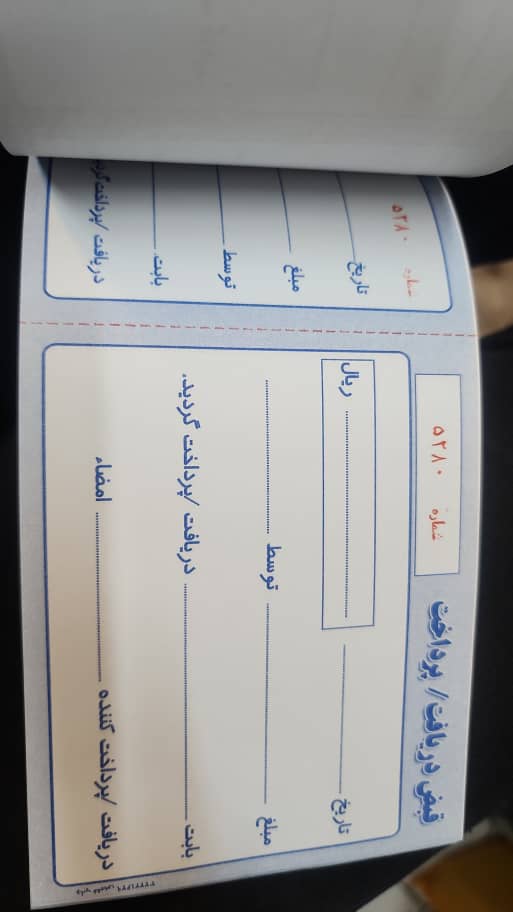 قبض دریافت / پرداخت
شماره ۵۲۸۰
تاریخ ریال
مبلغ توسط
بابت دریافت /پرداخت گردید.
دریافت /پرداخت کننده امضاء
شماره ۵۲۸۰
تاریخ
مبلغ
توسط
بابت
دریافت /پرداخت